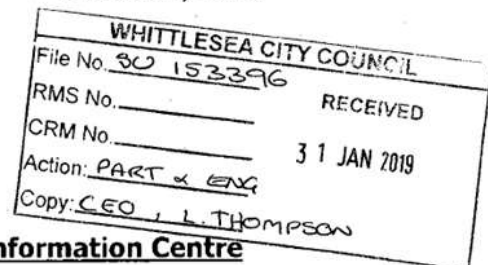 WHITTLESEA CITY COUNCIL
File No. SU 153396
RMS No.
RECEIVED
CRM No.
31 JAN 2019
Action: PART & ENG
Copy: CEO, L. THOMPSON
nformation Centre